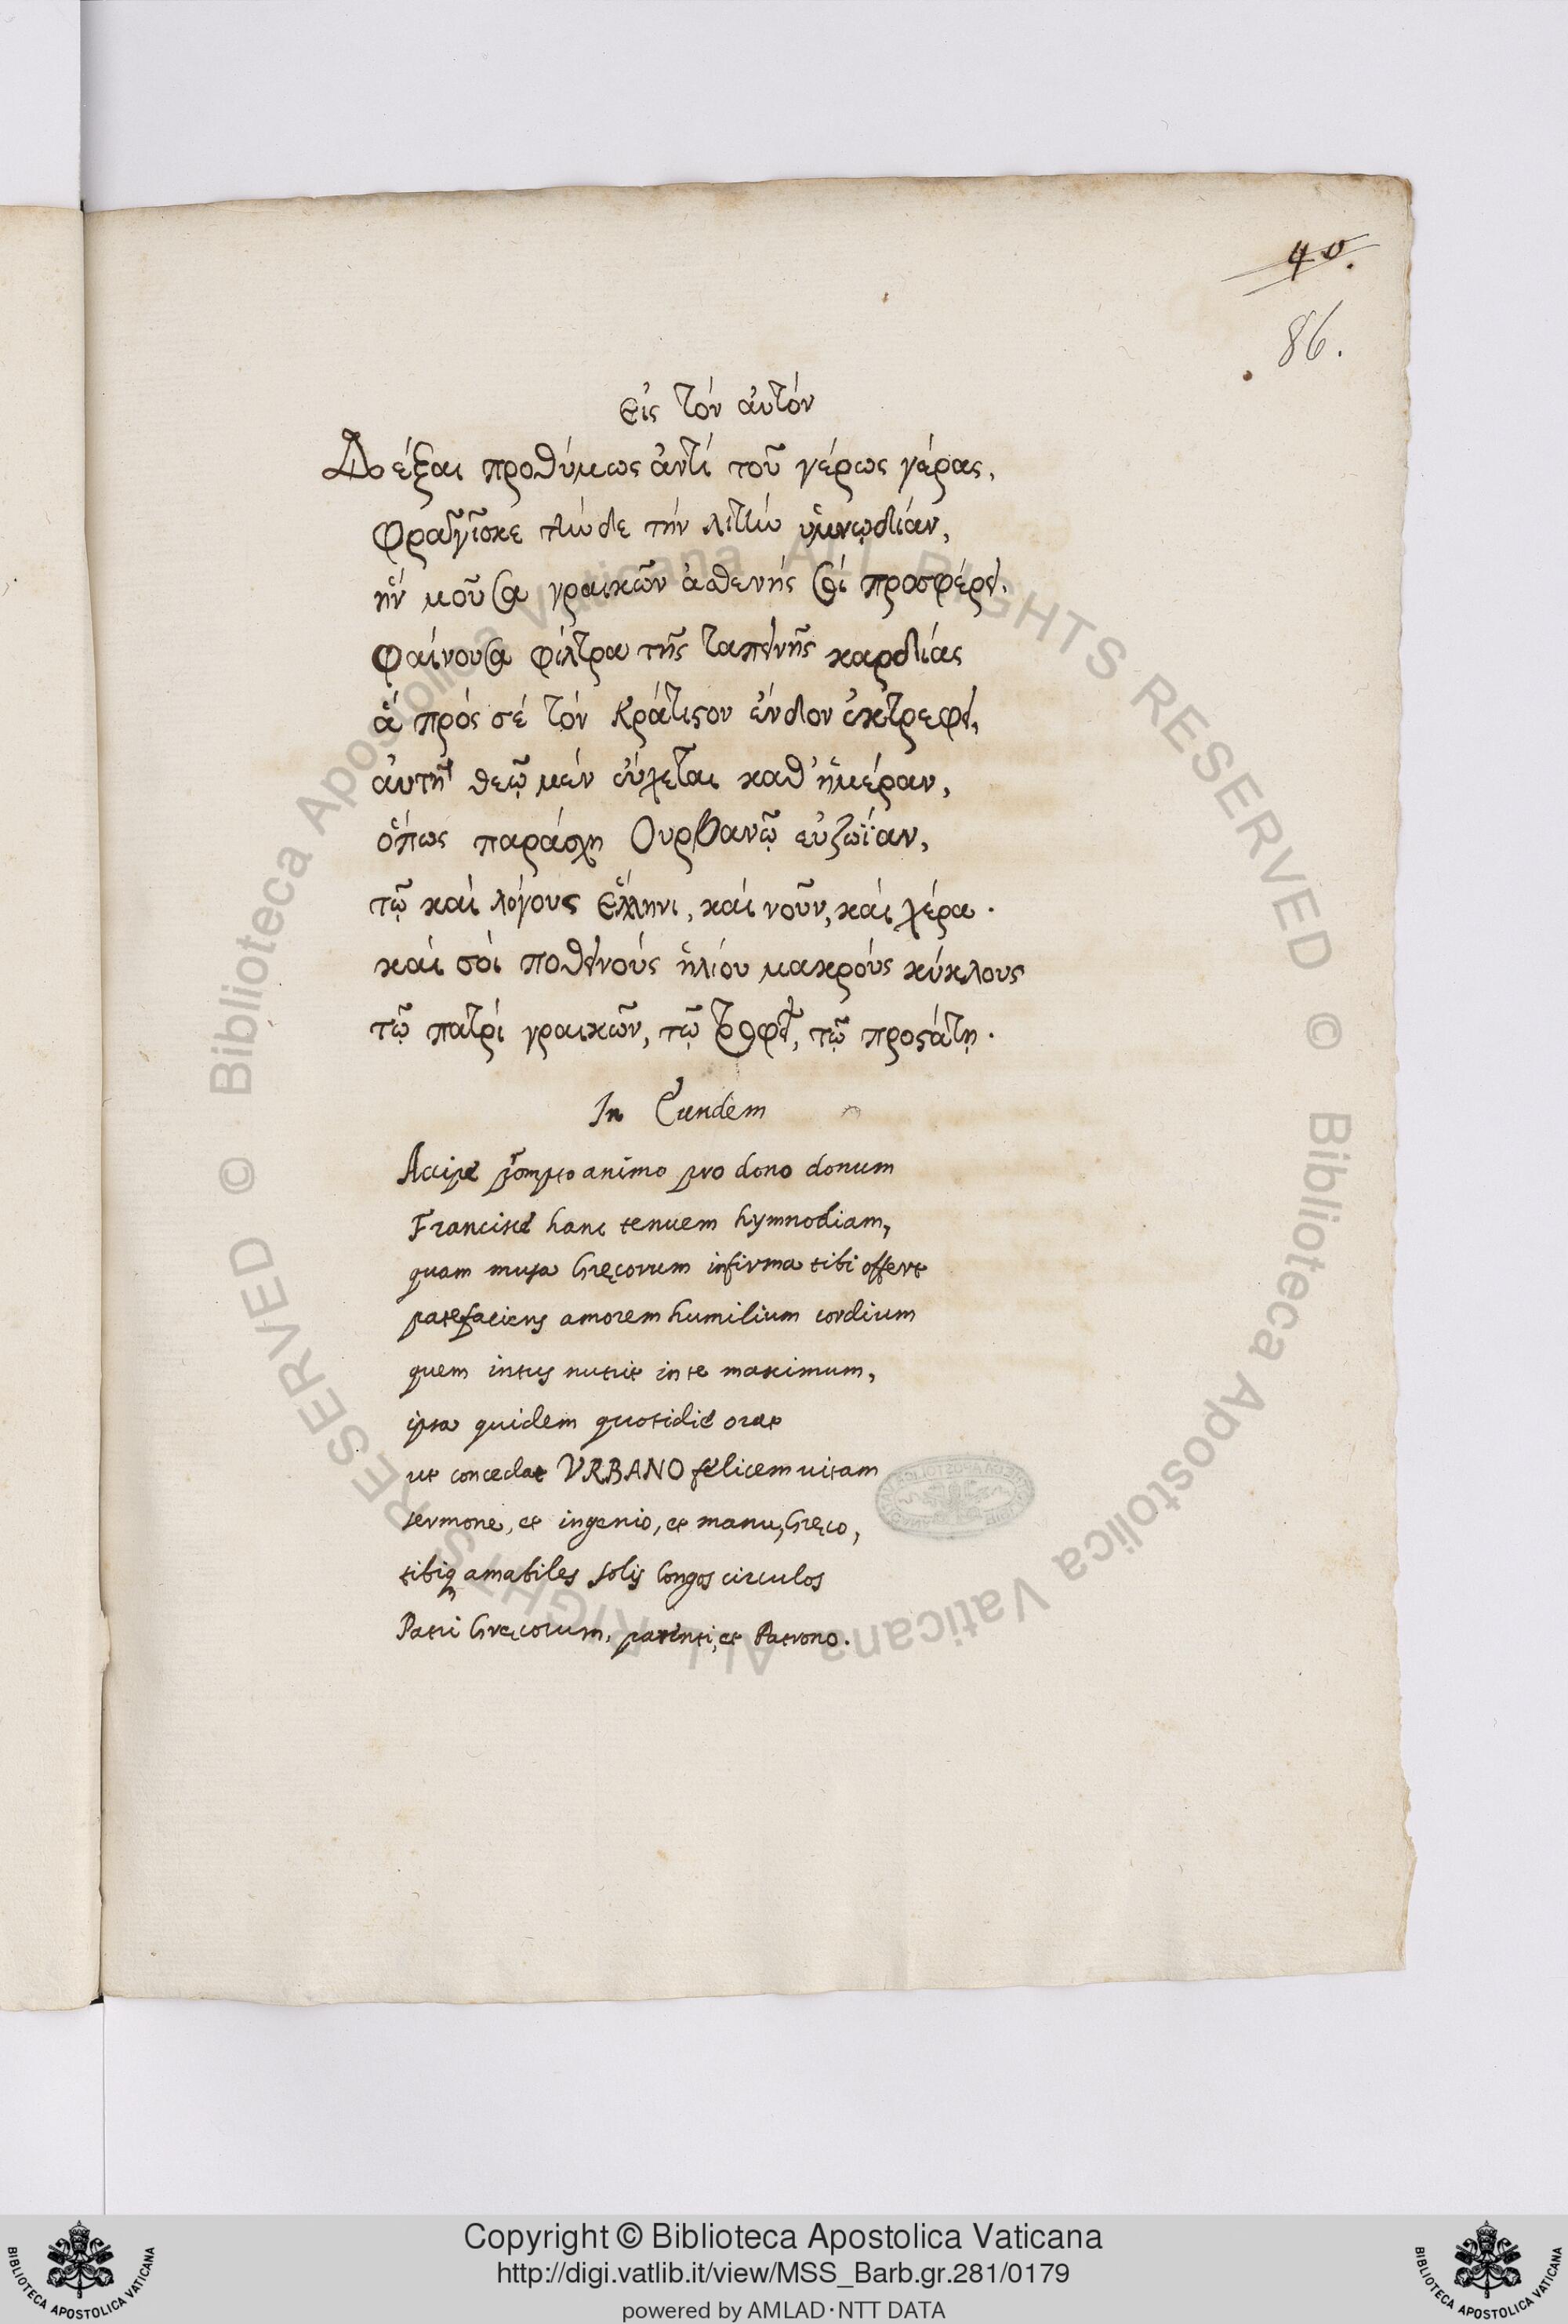 40.
86.
Εἰς τὸν αὐτὸν
Δέξαι προθύμως ἀντὶ τοῦ γέρως γέρας,
Φραγγῖσκε τήνδε τὴν λιτὴν ὑμνῳδίαν,
ἣν μοῦσα γραικῶν ἀσθενής σοι προσφέρει.
φαίνουσα φίλτρα τῆς ταπεινῆς καρδίας
ἃ πρός σέ τὸν κράτιστον ἔνδον ἐκτρέφει,
αὐτὴ θεῷ μὲν εὔχεται καθ' ἡμέραν,
ὅπως παράσχῃ Ουρβανῷ εὐζωΐαν,
τῷ καὶ λόγους Ἕλληνι, καὶ νοῦν, καὶ χέρα.
καὶ σοὶ ποθεινοὺς ἡλίου μακροὺς κύκλους
τῷ πατρὶ γραικῶν, τῷ τροφεῖ, τῷ προστάτῃ.
In Eundem
Accipe prompto animo pro dono donum
Francisce hanc tenuem hymnodiam,
quam musa Gręcorum infirma tibi offert
patefaciens amorem humilium cordium
quem intus nutrit in te maximum,
ipsa quidem quotidie orat
ut concedat VRBANO felicem uitam
sermone, et ingenio, et manu, Gręco,
tibiq amabiles solis longos circulos
Patri Gręcorum, parenti, et Patrono.
© Biblioteca Apostolica Vaticana ALL RIGHTS RESERVED
© Biblioteca Apostolica Vaticana ALL RIGHTS RESERVED
BIBLIOTECA APOSTOLICA VATICANA
Copyright © Biblioteca Apostolica Vaticana
http://digi.vatlib.it/view/MSS_Barb.gr.281/0179
powered by AMLAD·NTT DATA
BIBLIOTECA APOSTOLICA VATICANA